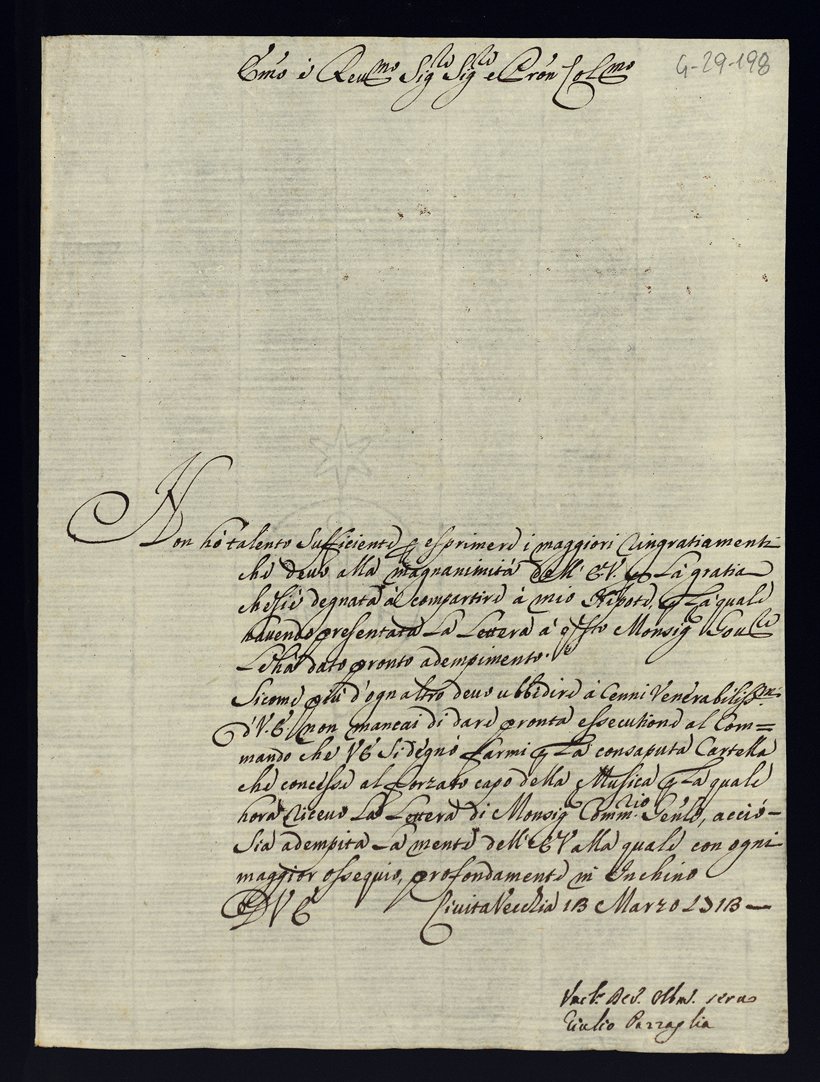 G-29-198
Emo e Reu.mo Sig.re Sig.re e Prōn Col.mo
Non hò talento sufficiente p esprimere i maggiori ringratiamenti
che deuo alla magnanimità dell' E.V. p La gratia
che sie degnata di compartire à mio Nipote, p La quale
hauendo presentata La Lettera à q.sto Monsig Gou.re
Le hà dato pronto adempimento.
Sicome più d'ogn altro deuo ubbidire à Cenni Venerabiliss.mi
d'V.E. non mancai di dare pronta essecutione al Com=
mando che V E si degnò farmi p La consaputa Cartella
che concesse al forzato capo della Musica p La quale
hora riceuo La Lettera di Monsig Comm.rio Genle, acciò
sia adempita La mente dell' E V alla quale con ogni
maggior ossequio, profondamente m' Inchino
D V E Ciuita Vecchia 1B Marzo 171B
Deu. Obm. seruo
Giulio Pazzaglia